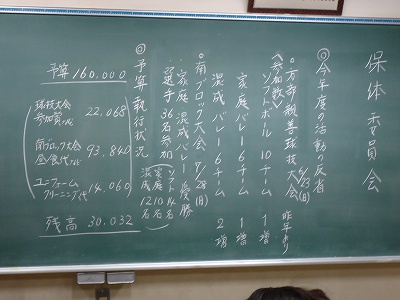 保体委員会
◎今年度の活動の反省
○方部親善球技大会 6/23(日)
〈参加数〉 昨年より
ソフトボール 10チーム 1増
家庭バレー 6チーム 1増
混成バレー 6チーム 2増
○南ブロック大会 7/28(日)
・家庭、混成バレー優勝
・選手36名参加
ソフト 14名
家庭 10名
混成 12名
◎予算執行状況
予算 160,000
球技大会
参加賞など 22,068
南ブロック大会
昼食代など 93,840
ユニフォーム
クリーニング代 14,060
残高 30,032